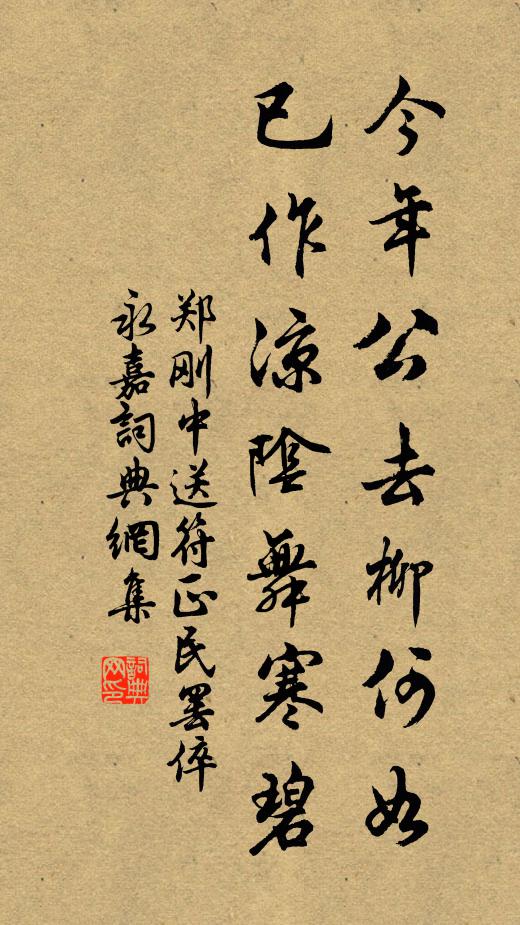 今年公去柳何如
已作凉陰舞寒碧
郑刚中送符正民罢倅
永嘉詞典網集
詞典
网印